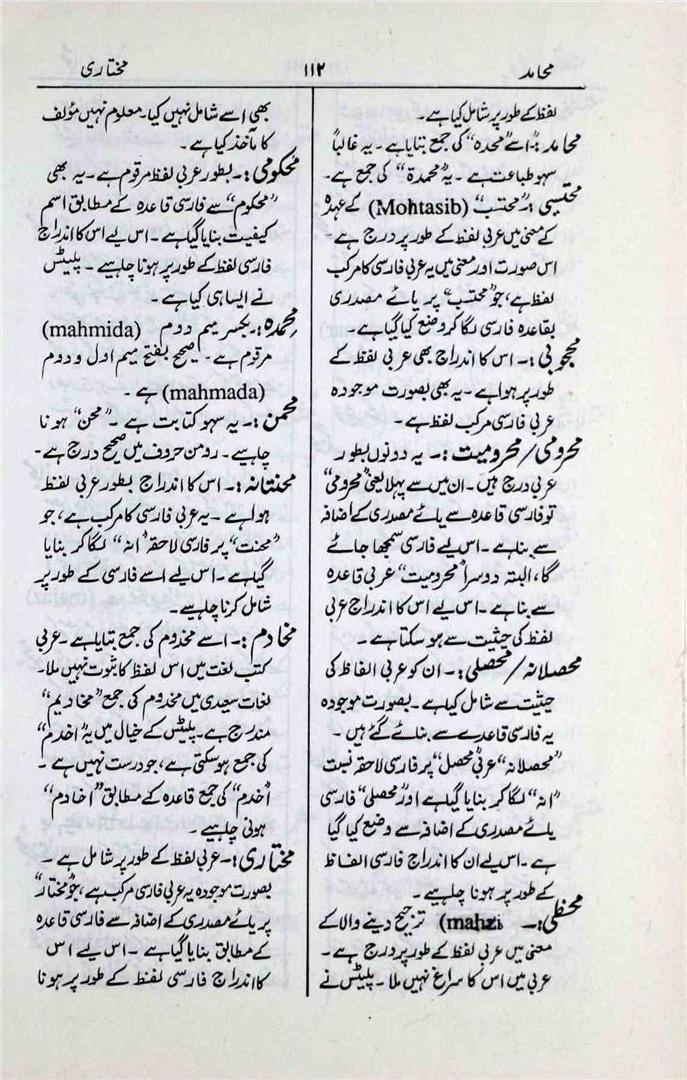 محامد ۱۱۲ مختاری
لفظ کے طور پر شامل کیا ہے۔
محامد :۔ اسے "محمدہ" کی جمع بتایا ہے۔ یہ غالباً
سہو طباعت ہے۔ یہ "محمدۃ" کی جمع ہے۔
محتسبی :۔ "محتسب" (Mohtasib) کے عہدہ
کے معنی میں عربی لفظ کے طور پر درج ہے۔
اس صورت اور معنی میں یہ عربی فارسی کا مرکب
لفظ ہے، جو "محتسب" پر یائے مصدری
بقاعدہ فارسی لگا کر وضع کیا گیا ہے۔
محجوبی :۔ اس کا اندراج بھی عربی لفظ کے
طور پر ہوا ہے۔ یہ بھی بصورت موجودہ
عربی فارسی مرکب لفظ ہے۔
محرومی/محرومیت :۔ یہ دونوں بطور
عربی درج ہیں۔ ان میں سے پہلا یعنی "محرومی"
تو فارسی قاعدہ سے یائے مصدری کے اضافہ
سے بنا ہے۔ اس لیے فارسی سمجھا جائے
گا، البتہ دوسرا "محرومیت" عربی قاعدہ
سے بنا ہے۔ اس لیے اس کا اندراج عربی
لفظ کی حیثیت سے ہو سکتا ہے۔
محصلانہ/محصلی :۔ ان کو عربی الفاظ کی
حیثیت سے شامل کیا ہے۔ بصورت موجودہ
یہ فارسی قاعدے سے بنائے گئے ہیں۔
"محصلانہ" عربی "محصل" پر فارسی لاحقہ نسبت
"انہ" لگا کر بنایا گیا ہے اور "محصلی" فارسی
یائے مصدری کے اضافہ سے وضع کیا گیا
ہے۔ اس لیے ان کا اندراج فارسی الفاظ
کے طور پر ہونا چاہیے۔
محظی :۔ (mahzi) ترجیح دینے والا کے
معنی میں عربی لفظ کے طور پر درج ہے۔
عربی میں اس کا سراغ نہیں ملا۔ پلیٹس نے
بھی اسے شامل نہیں کیا۔ معلوم نہیں مؤلف
کا مآخذ کیا ہے۔
محکومی :۔ بطور عربی لفظ مرقوم ہے۔ یہ بھی
"محکوم" سے فارسی قاعدہ کے مطابق اسم
کیفیت بنایا گیا ہے۔ اس لیے اس کا اندراج
فارسی لفظ کے طور پر ہونا چاہیے۔ پلیٹس
نے ایسا ہی کیا ہے۔
محمدہ :۔ بکسر میم دوم (mahmida)
مرقوم ہے۔ صحیح بفتح میم اول و دوم
(mahmada) ہے۔
محمن :۔ یہ سہو کتابت ہے۔ "محن" ہونا
چاہیے۔ رومن حروف میں صحیح درج ہے۔
محنتانہ :۔ اس کا اندراج بطور عربی لفظ
ہوا ہے۔ یہ عربی فارسی کا مرکب ہے، جو
"محنت" پر فارسی لاحقہ "انہ" لگا کر بنایا
گیا ہے۔ اس لیے اسے فارسی کے طور پر
شامل کرنا چاہیے۔
مخادم :۔ اسے مخدوم کی جمع بتایا ہے۔ عربی
کتب لغت میں اس لفظ کا ثبوت نہیں ملا۔
لغات سعیدی میں مخدوم کی جمع "مخادیم"
مندرج ہے۔ پلیٹس کے خیال میں یہ "اخدم"
کی جمع ہو سکتی ہے، جو درست نہیں ہے۔
"اخدم" کی جمع قاعدہ کے مطابق "اخادم"
ہونی چاہیے۔
مختاری :۔ عربی لفظ کے طور پر شامل ہے۔
بصورت موجودہ یہ عربی فارسی مرکب ہے، جو "مختار"
پر یائے مصدری کے اضافہ سے فارسی قاعدہ
کے مطابق بنایا گیا ہے۔ اس لیے اس
کا اندراج فارسی لفظ کے طور پر ہونا